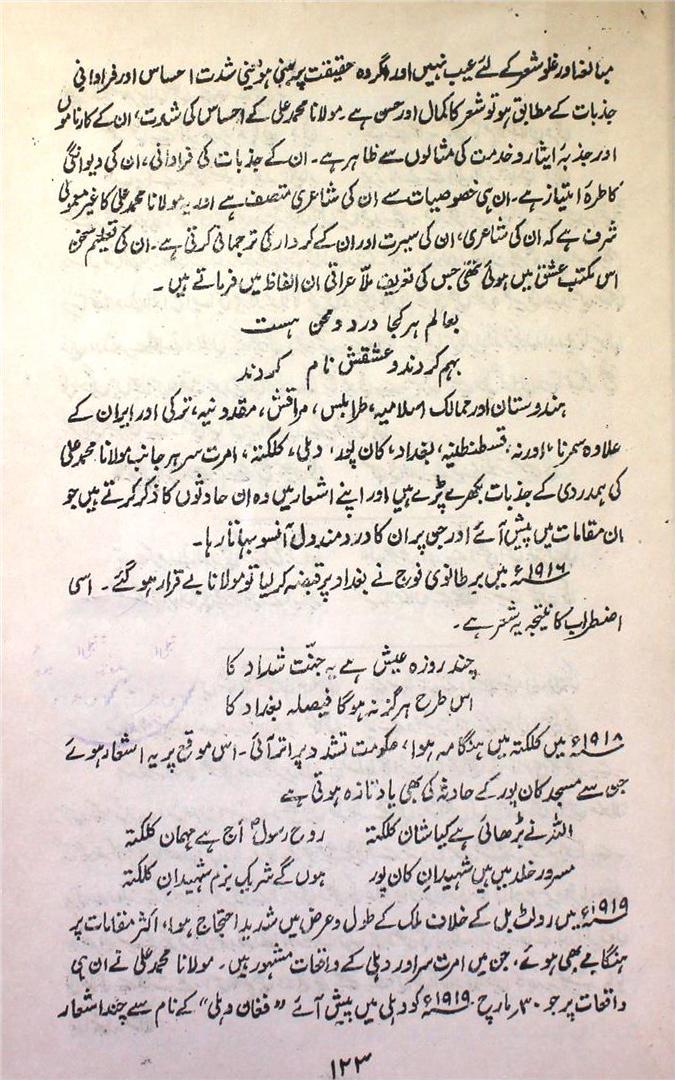 مبالغہ اور غلو شعر کے لئے عیب نہیں اور اگر وہ حقیقت پر مبنی ہو یعنی شدت احساس اور فراوانی
جذبات کے مطابق ہو تو شعر کا کمال اور حسن ہے۔ مولانا محمد علی کے احساس کی شدت، ان کے کارناموں
اور جذبۂ ایثار و خدمت کی مثالوں سے ظاہر ہے۔ ان کے جذبات کی فراوانی، ان کی دیوانگی
کا طرۂ امتیاز ہے۔ ان ہی خصوصیات سے ان کی شاعری متصف ہے اور یہ مولانا محمد علی کا غیر معمولی
شرف ہے کہ ان کی شاعری، ان کی سیرت اور ان کے کردار کی ترجمانی کرتی ہے۔ ان کی تعلیم سخن
اس مکتب عشق میں ہوئی تھی جس کی تعریف ملّا عراقی ان الفاظ میں فرماتے ہیں۔
بعالم ہر کجا درد و محن ہست
بہم کردند و عشقش نام کردند
ہندوستان اور ممالک اسلامیہ، طرابلس، مراقش، مقدونیہ، ترکی اور ایران کے
علاوہ سمرنا، اورنہ، قسطنطنیہ، بغداد، کان پور، دہلی، کلکتہ، امرت سر ہر جانب مولانا محمد علی
کی ہمدردی کے جذبات بکھرے پڑے ہیں اور اپنے اشعار میں وہ ان حادثوں کا ذکر کرتے ہیں جو
ان مقامات میں پیش آئے اور جن پر ان کا دردمند دل آنسو بہاتا رہا۔
۱۹۱۶ء میں برطانوی فوج نے بغداد پر قبضہ کر لیا تو مولانا بے قرار ہو گئے۔ اسی
اضطراب کا نتیجہ یہ شعر ہے۔
چند روزہ عیش ہے یہ جنّت شداد کا
اس طرح ہرگز نہ ہوگا فیصلہ بغداد کا
۱۹۱۸ء میں کلکتہ میں ہنگامہ ہوا، حکومت تشدد پر اتر آئی۔ اس موقع پر یہ اشعار ہوئے
جن سے مسجد کان پور کے حادثہ کی بھی یاد تازہ ہوتی ہے
اللہ نے بڑھائی ہے کیا شان کلکتہ روح رسولؐ آج ہے مہمان کلکتہ
مسرور خلد میں ہیں شہیدانِ کان پور ہوں گے شریک بزم شہیدانِ کلکتہ
۱۹۱۹ء میں رولٹ بل کے خلاف ملک کے طول و عرض میں شدید احتجاج ہوا، اکثر مقامات پر
ہنگامے بھی ہوئے، جن میں امرت سر اور دہلی کے واقعات مشہور ہیں۔ مولانا محمد علی نے ان ہی
واقعات پر جو ۳۰ر مارچ ۱۹۱۹ء کو دہلی میں پیش آئے "فغان دہلی" کے نام سے چند اشعار
۱۲۳